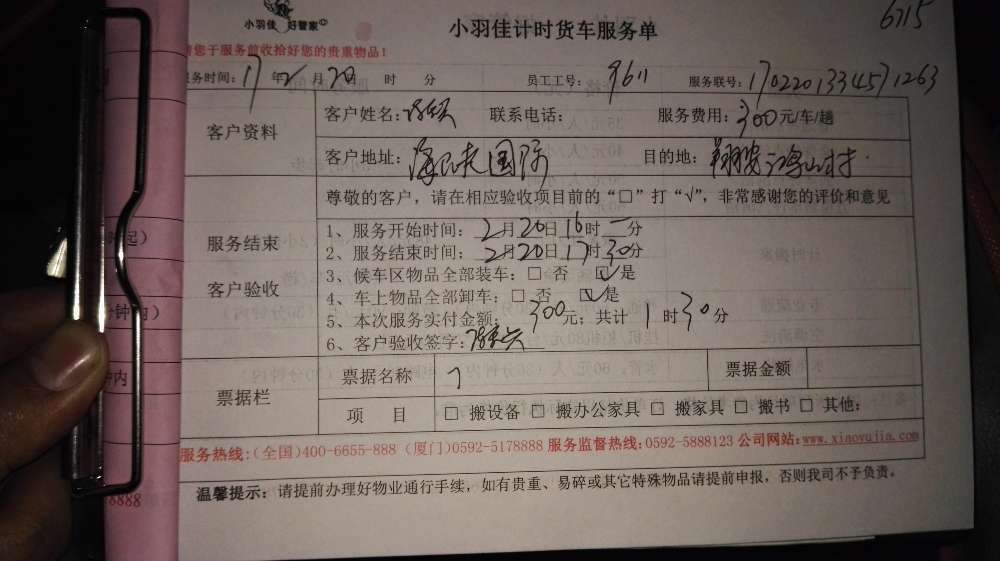 6115
小羽佳 好管家
小羽佳计时货车服务单
请您于服务前收拾好您的贵重物品!
服务时间: 17 年 2 月 20 日 时 分 员工工号: 9611 服务联号: 1702201334571263
客户资料
客户姓名: 联系电话: 服务费用: 300元/车/趟
客户地址: 国际 目的地: 山村
尊敬的客户,请在相应验收项目前的“□”打“√”,非常感谢您的评价和意见
服务结束
客户验收
1、服务开始时间: 2月20日16时 一分
2、服务结束时间: 2月20日17时30分
3、候车区物品全部装车: □ 否 ☑是
4、车上物品全部卸车: □ 否 ☑是
5、本次服务实付金额: 300元; 共计 1 时30分
6、客户验收签字:
票据栏
票据名称 票据金额
项 目 □ 搬设备 □ 搬办公家具 □ 搬家具 □ 搬书 □ 其他:
服务热线:(全国)400-6655-888 (厦门)0592-5178888 服务监督热线:0592-5888123 公司网站:www.xiaoyujia.com
温馨提示:请提前办理好物业通行手续,如有贵重、易碎或其它特殊物品请提前申报,否则我司不予负责。